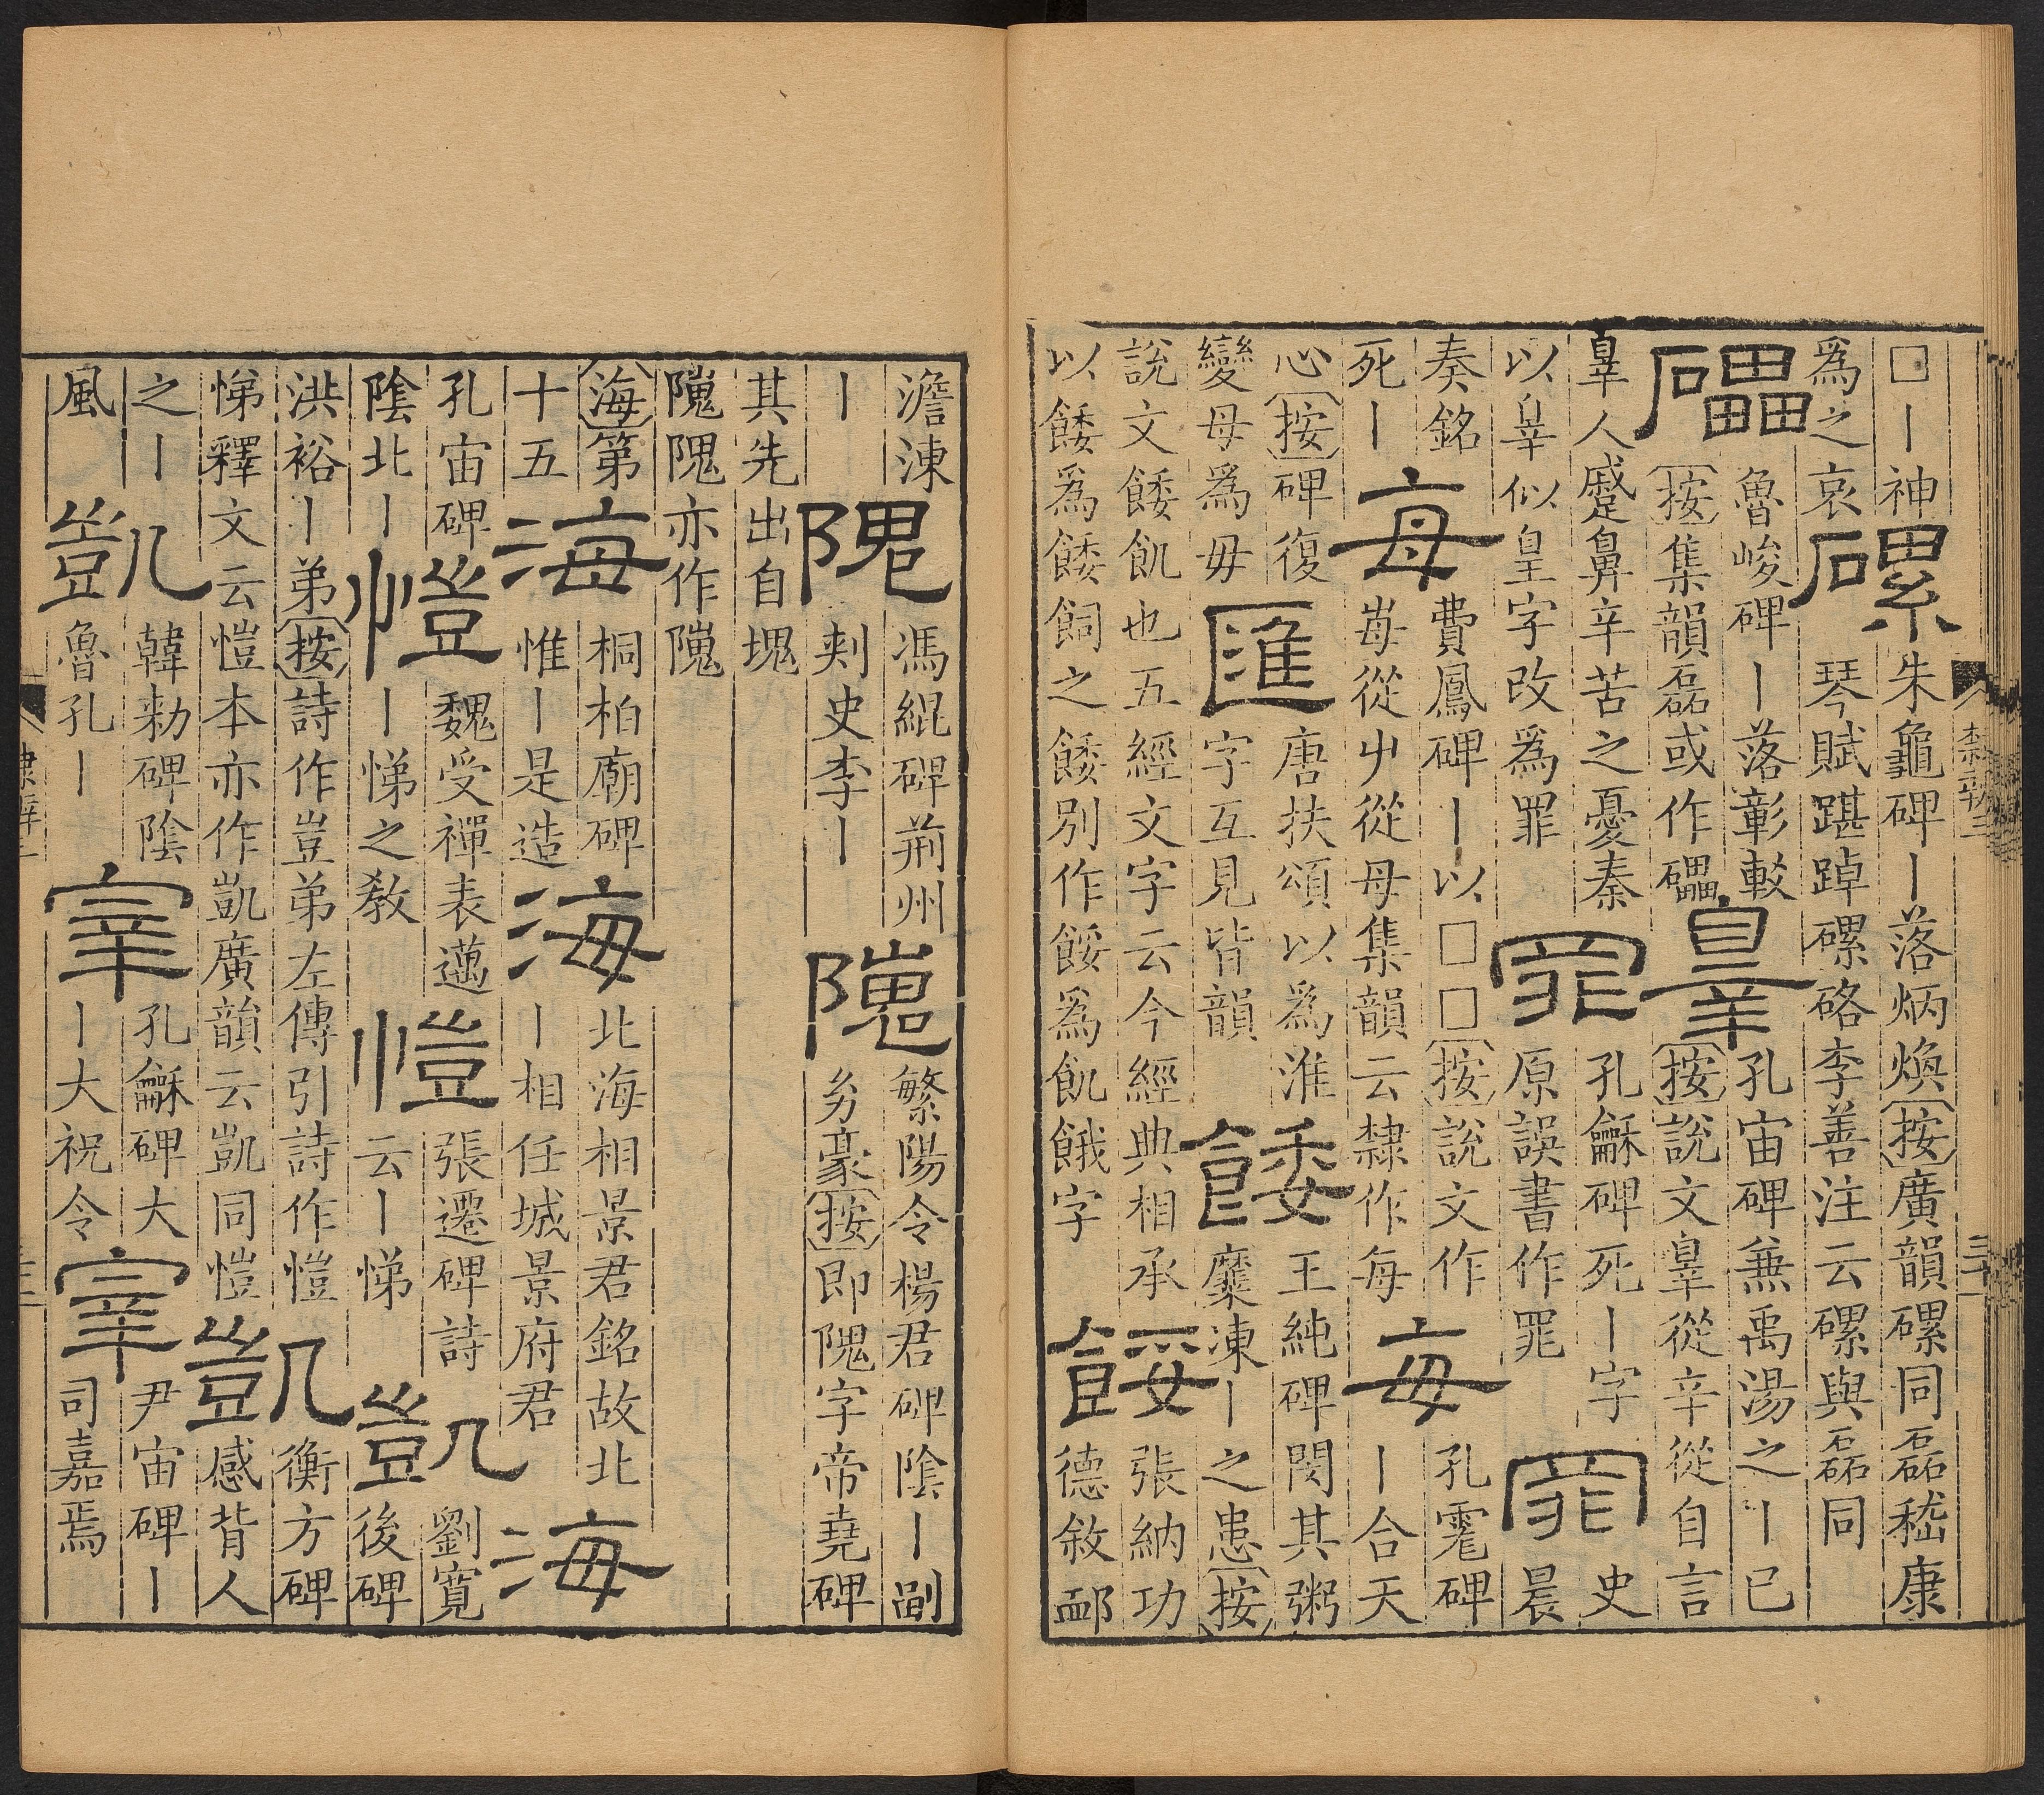 □丨神
爲之哀
磥
朱龜碑丨落炳煥按廣韻磥同磊嵇康
琴賦踸踔磥硌李善注云磥與磊同
礧
魯峻碑丨落彰較
按集韻磊或作礧
辠
孔宙碑兼禹湯之丨已
按說文辠從辛從自言
辠人蹙鼻辛苦之憂秦
以辠似皇字改爲罪
罪
孔龢碑死丨字
原誤書作罪
罪
史
晨
奏銘
死丨
每
費鳳碑丨以□□按說文作
𡴕從屮從母集韻云隸作每
每
孔碑
丨合天
心按碑復
變母爲毋
匯
唐扶頌以爲淮
字互見皆韻
餧
王純碑閔其粥
糜凍丨之患按
說文餧飢也五經文字云今經典相承
以餧爲餧飼之餧別作餒爲飢餓字
餒
張納功
德敘䘏
澹涷
丨
隗
馮緄碑荊州
刾史李丨
隗
繁陽令楊君碑陰丨副
豪按即隗字帝堯碑
其先出自塊
隗隗亦作隗
海第
十五
海
桐柏廟碑
惟丨是造
海
北海相景君銘故北
丨相任城景府君
海
孔宙碑
陰北丨
愷
魏受禪表邁
丨悌之教
愷
張遷碑詩
云丨悌
凱
劉寬
後碑
洪裕丨弟按詩作豈弟左傳引詩作愷
悌釋文云愷本亦作凱廣韻云凱同愷
凱
衡方碑
感背人
之丨
風
凱
韓勑碑陰
魯孔丨
宰
孔龢碑大
丨大祝令
宰
尹宙碑丨
司嘉焉